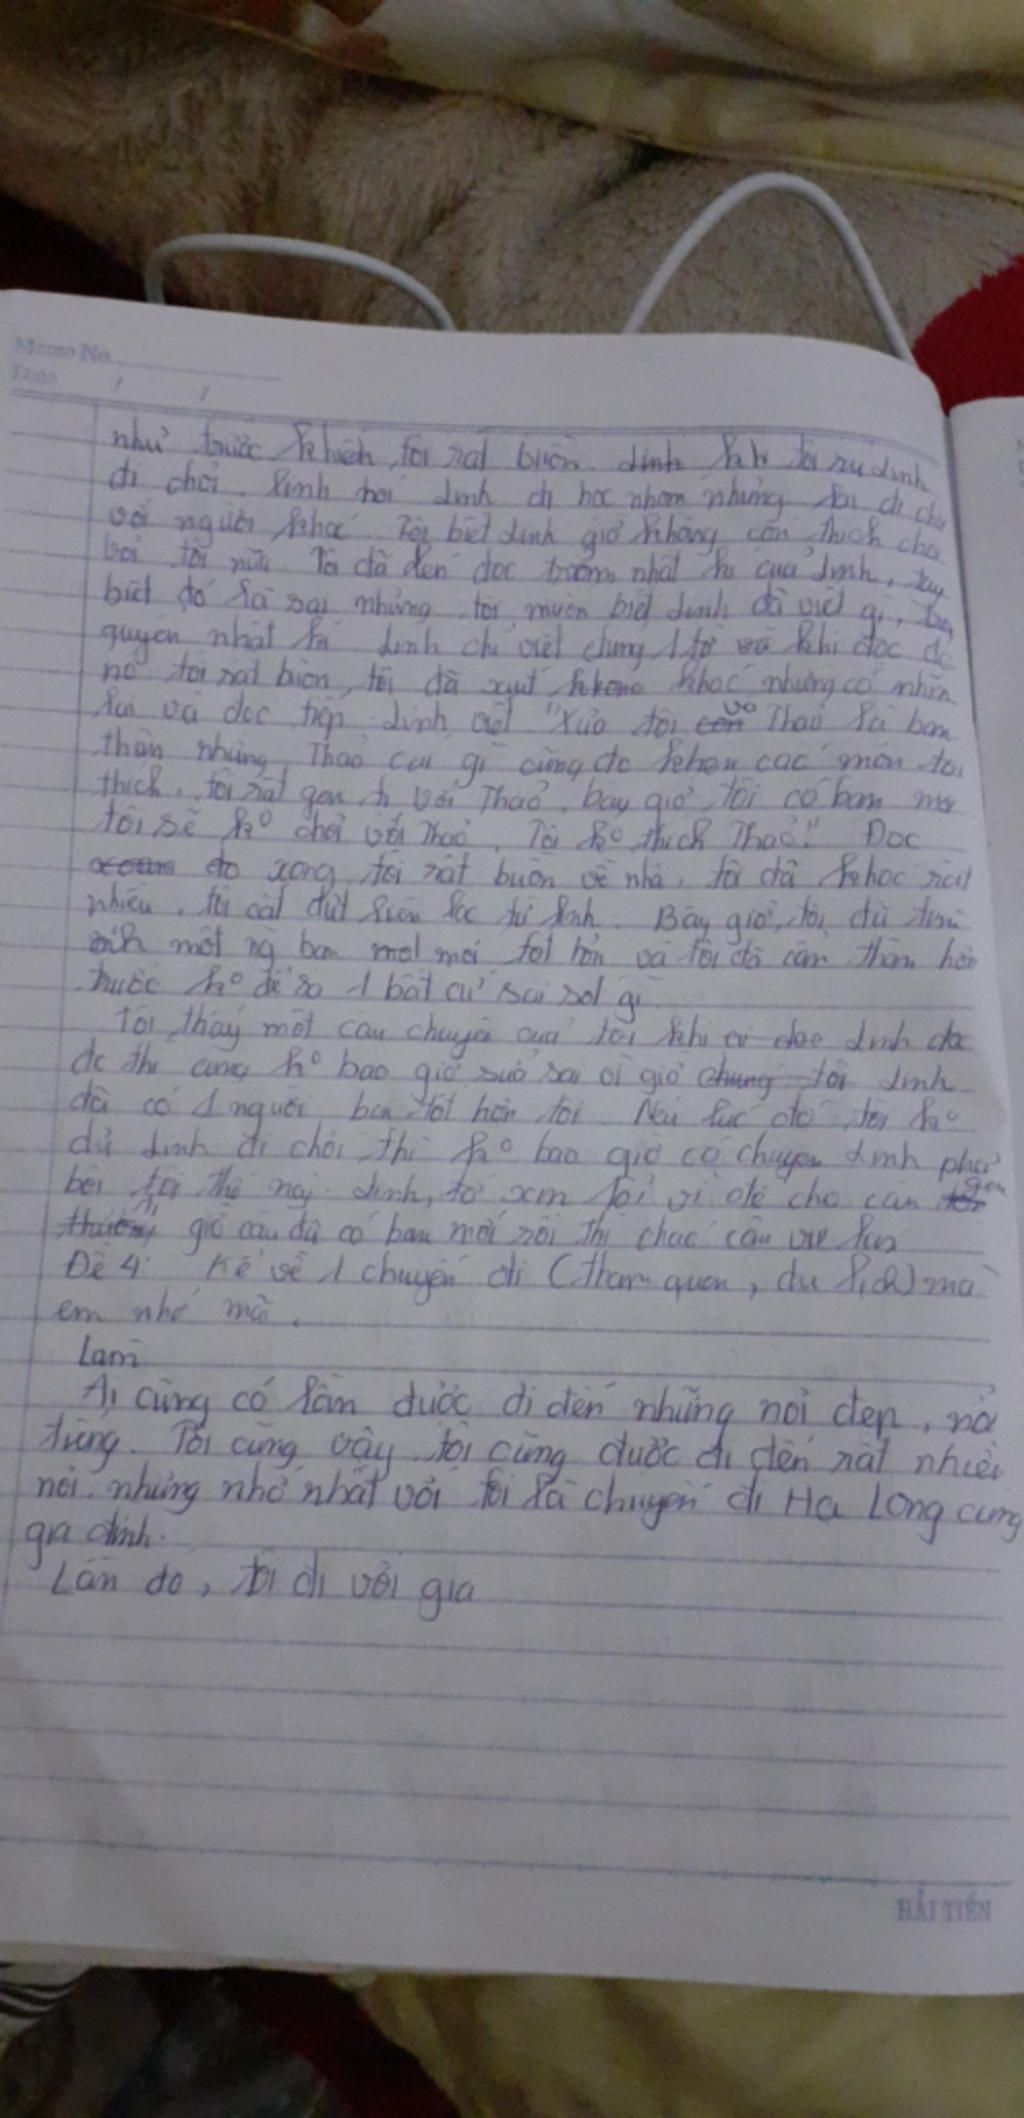 Memo No.
Date / /
như trước khiến tôi rất buồn. Linh tôi rủ Linh
đi chơi. Linh nói Linh đi học nhóm nhưng lại đi chơi
với người khác. Tôi biết Linh giờ không còn thích chơi
với tôi nữa. Tôi đã đến đọc trộm nhật kí của Linh, tuy
biết đó là sai nhưng tôi muốn biết Linh đã viết gì,
quyển nhật kí Linh chỉ viết đúng 1 tờ và khi đọc
nó tôi rất buồn, tôi đã khóc nhưng cố nhìn
lại và đọc tiếp Linh viết "Xưa tôi và Thảo là bạn
thân nhưng Thảo cái gì cũng đc hơn các môn tôi
thích, tôi rất gen tị với Thảo, bây giờ tôi có bạn mới
tôi sẽ ko chơi với Thảo. Tôi ko thích Thảo!" Đọc
xong tôi rất buồn về nhà, tôi đã khóc rất
nhiều, tôi cắt đứt liên lạc từ Linh. Bây giờ, tôi đã tìm
một ng bạn mới tốt hơn và tôi đã cẩn thận hơn
trước ko để 1 bất cứ sai sót gì.
Tôi thấy một câu chuyện của tôi khi Linh đọc
đc thì cũng ko bao giờ sửa sai vì giờ Linh
đã có 1 người bạn tốt hơn tôi. Nếu lúc đó tôi ko
rủ Linh đi chơi thì ko bao giờ có chuyện Linh phải
tôi thế này. Linh, tớ xin lỗi vì để cho cậu gen
giờ cậu đã có bạn mới rồi thì chúc cậu vui
Đề 4: Kể về 1 chuyến đi (tham quan, du lịch) mà
em nhớ mãi.
Làm
Ai cũng có lần được đi đến những nơi đẹp, nổi
tiếng. Tôi cũng vậy tôi cũng được đi đến rất nhiều
nơi. nhưng nhớ nhất với tôi là chuyến đi Hạ Long cùng
gia đình.
Lần đó, tôi đi với gia
HẢI TIẾN